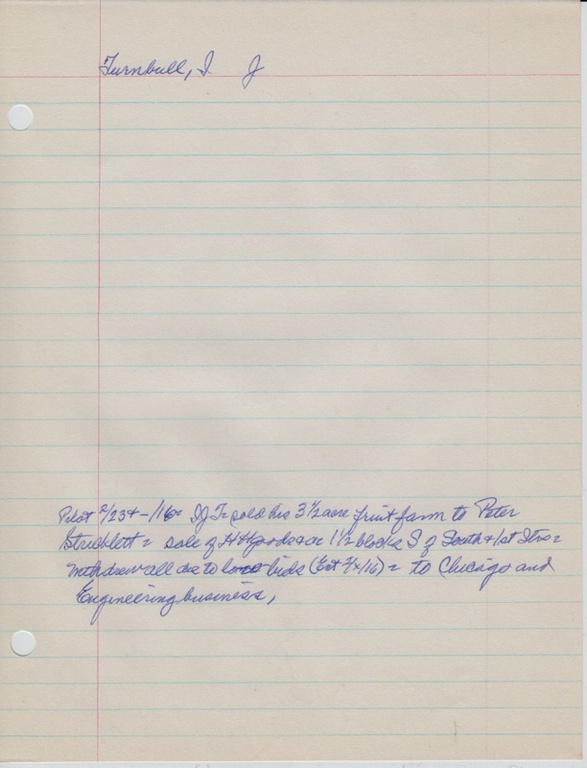 Turnbull, I J
Pilot 2/23+-/16= IJT= sold his 3 1/2 acre fruit farm to Peter
Stricklett = sale of HHgoods+ac 1 1/2 blocks S of South + 1st Strs=
withdrew all due to low bids (Ext 2/x/16) = to Chicago and
Engineering business,